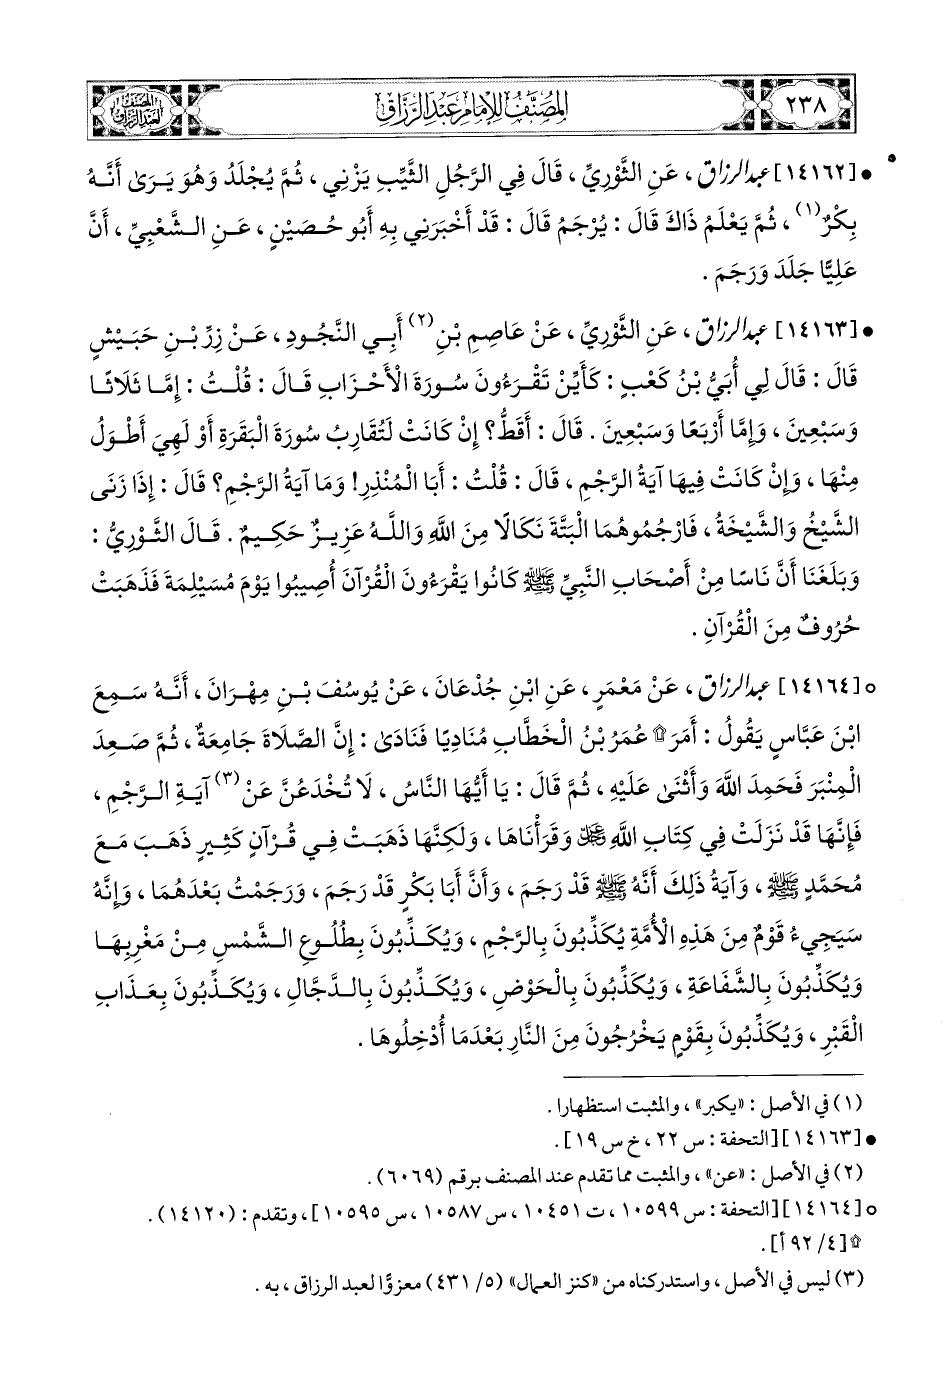 ٢٣٨
المُصَنَّفُ لِلإِمَامِ عَبْدِ الرَّزَّاقِ
المصنف لعبد الرزاق
• [١٤١٦٢] عبد الرزاق ، عَنِ الثَّوْرِيِّ ، قَالَ فِي الرَّجُلِ الثَّيِّبِ يَزْنِي ، ثُمَّ يُجْلَدُ وَهُوَ يَرَىٰ أَنَّهُ
بِكْرٌ(١) ، ثُمَّ يَعْلَمُ ذَاكَ قَالَ : يُرْجَمُ قَالَ : قَدْ أَخْبَرَنِي بِهِ أَبُو حُصَيْنٍ ، عَنِ الشَّعْبِيِّ ، أَنَّ
عَلِيًّا جَلَدَ وَرَجَمَ .
• [١٤١٦٣] عبد الرزاق ، عَنِ الثَّوْرِيِّ ، عَنْ عَاصِمِ بْنِ(٢) أَبِي النَّجُودِ ، عَنْ زِرِّ بْنِ حُبَيْشٍ
قَالَ : قَالَ لِي أُبَيُّ بْنُ كَعْبٍ : كَأَيِّنْ تَقْرَءُونَ سُورَةَ الْأَحْزَابِ قَالَ : قُلْتُ : إِمَّا ثَلَاثًا
وَسَبْعِينَ ، وَإِمَّا أَرْبَعًا وَسَبْعِينَ . قَالَ : أَقَطُّ؟ إِنْ كَانَتْ لَتُقَارِبُ سُورَةَ الْبَقَرَةِ أَوْ لَهِيَ أَطْوَلُ
مِنْهَا ، وَإِنْ كَانَتْ فِيهَا آيَةُ الرَّجْمِ ، قَالَ : قُلْتُ : أَبَا الْمُنْذِرِ! وَمَا آيَةُ الرَّجْمِ؟ قَالَ : إِذَا زَنَى
الشَّيْخُ وَالشَّيْخَةُ ، فَارْجُمُوهُمَا الْبَتَّةَ نَكَالًا مِنَ اللَّهِ وَاللَّهُ عَزِيزٌ حَكِيمٌ . قَالَ الثَّوْرِيُّ :
وَبَلَغَنَا أَنَّ نَاسًا مِنْ أَصْحَابِ النَّبِيِّ ﷺ كَانُوا يَقْرَءُونَ الْقُرْآنَ أُصِيبُوا يَوْمَ مُسَيْلِمَةَ فَذَهَبَتْ
حُرُوفٌ مِنَ الْقُرْآنِ .
○ [١٤١٦٤] عبد الرزاق ، عَنْ مَعْمَرٍ ، عَنِ ابْنِ جُدْعَانَ ، عَنْ يُوسُفَ بْنِ مِهْرَانَ ، أَنَّهُ سَمِعَ
ابْنَ عَبَّاسٍ يَقُولُ : أَمَرَ ۩ عُمَرُ بْنُ الْخَطَّابِ مُنَادِيًا فَنَادَىٰ : إِنَّ الصَّلَاةَ جَامِعَةٌ ، ثُمَّ صَعِدَ
الْمِنْبَرَ فَحَمِدَ اللَّهَ وَأَثْنَىٰ عَلَيْهِ ، ثُمَّ قَالَ : يَا أَيُّهَا النَّاسُ ، لَا تُخْدَعُنَّ عَنْ(٣) آيَةِ الرَّجْمِ ،
فَإِنَّهَا قَدْ نَزَلَتْ فِي كِتَابِ اللَّهِ عَزَّ وَجَلَّ وَقَرَأْنَاهَا ، وَلَكِنَّهَا ذَهَبَتْ فِي قُرْآنٍ كَثِيرٍ ذَهَبَ مَعَ
مُحَمَّدٍ ﷺ ، وَآيَةُ ذَلِكَ أَنَّهُ ﷺ قَدْ رَجَمَ ، وَأَنَّ أَبَا بَكْرٍ قَدْ رَجَمَ ، وَرَجَمْتُ بَعْدَهُمَا ، وَإِنَّهُ
سَيَجِيءُ قَوْمٌ مِنْ هَذِهِ الْأُمَّةِ يُكَذِّبُونَ بِالرَّجْمِ ، وَيُكَذِّبُونَ بِطُلُوعِ الشَّمْسِ مِنْ مَغْرِبِهَا
وَيُكَذِّبُونَ بِالشَّفَاعَةِ ، وَيُكَذِّبُونَ بِالْحَوْضِ ، وَيُكَذِّبُونَ بِالدَّجَّالِ ، وَيُكَذِّبُونَ بِعَذَابِ
الْقَبْرِ ، وَيُكَذِّبُونَ بِقَوْمٍ يَخْرُجُونَ مِنَ النَّارِ بَعْدَمَا أُدْخِلُوهَا .
(١) في الأصل : «يكبر» ، والمثبت استظهارا .
• [١٤١٦٣] [التحفة : س ٢٢ ، خ س ١٩] .
(٢) في الأصل : «عن» ، والمثبت مما تقدم عند المصنف برقم (٦٠٦٩) .
○ [١٤١٦٤] [التحفة : س ١٠٥٩٩ ، ت ١٠٤٥١ ، س ١٠٥٨٧ ، س ١٠٥٩٥] ، وتقدم : (١٤١٢٠) .
۩ [٤/ ٩٢ أ] .
(٣) ليس في الأصل ، واستدركناه من «كنز العمال» (٥/ ٤٣١) معزوًّا لعبد الرزاق ، به .